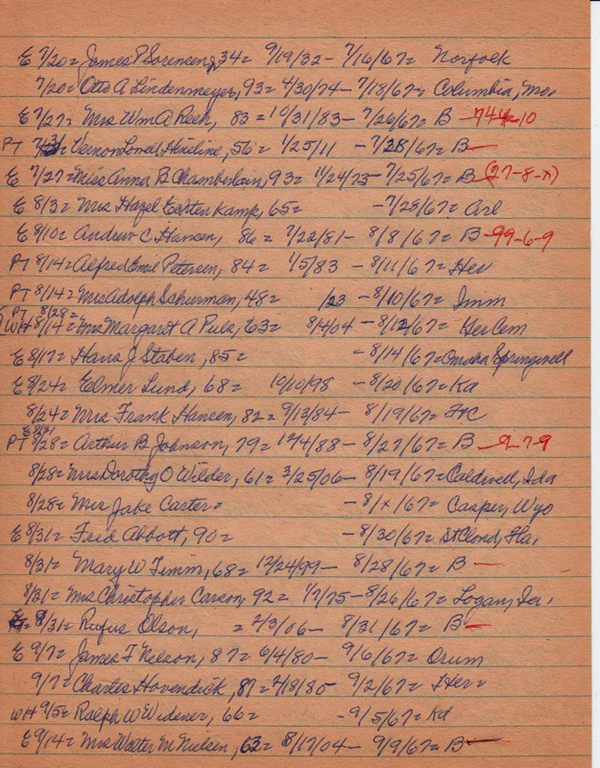 E 7/20= James P Sorensen, 34= 9/19/32- 7/16/67= Norfolk
7/20= Otto A Lindenmeyer, 93= 4/30/74- 7/18/67= Columbia, Mo.
E 7/27= Mrs Wm A Reeh, 83= 10/31/83- 7/26/67= B -744-10
PT 7/31= Vernon Lowell Hineline, 56= 1/25/11 - 7/28/67= B-
E 7/27= Miss Anna B Chamberlain, 93= 11/24/73- 7/25/67= B (27-8-x)
E 8/3= Mrs Hazel Eerten Kamp, 65= -7/29/67= Arl
E 8/10= Andrew C Hansen, 86= 7/22/81- 8/8/67= B-99-6-9
PT 8/14= Alfred Emil Petersen, 84= 1/5/83 - 8/11/67= Her
PT 8/14= Mrs Adolph Schurman, 48= /23 - 8/10/67= Imm
PT 8/28=
WH 8/14= Mrs Margaret A Puls, 63= 8/4/04 - 8/12/67= Her Cem
E 8/17= Hans J Staben, 85= -8/14/67= Omaha Springwell
E 8/24= Elmer Lund, 68= 10/10/98 - 8/20/67= Ka
8/24= Mrs Frank Hansen, 82= 9/13/84- 8/19/67= FtC
E 8/31
PT 8/28= Arthur B Johnson, 79= 12/4/88- 8/27/67= B -9-7-9
8/28= Mrs Dorothy O Wilder, 61= 3/25/06- 8/19/67= Caldwell, Ida
8/28= Mrs Jake Carter= -8/x/67= Casper, Wyo
E 8/31= Fred Abbott, 90= -8/30/67= St Cloud, Fla.
8/31= Mary W Timm, 68= 12/24/99- 8/28/67= B -
8/31= Mrs Christopher Carson, 92= 1/7/75- 8/26/67= Logan, Ia.
E 8/31= Rufus Olson, = 2/3/06- 8/31/67= B-
E 9/7= James F Nelson, 87= 6/4/80- 9/6/67= Orum
9/7= Charles Hovendick, 87= 2/18/80- 9/2/67= Her=
WH 9/5= Ralph W Widener, 66= -9/5/67= Ka
E 9/14= Mrs Walter M Nielsen, 63= 8/17/04- 9/9/67= B-